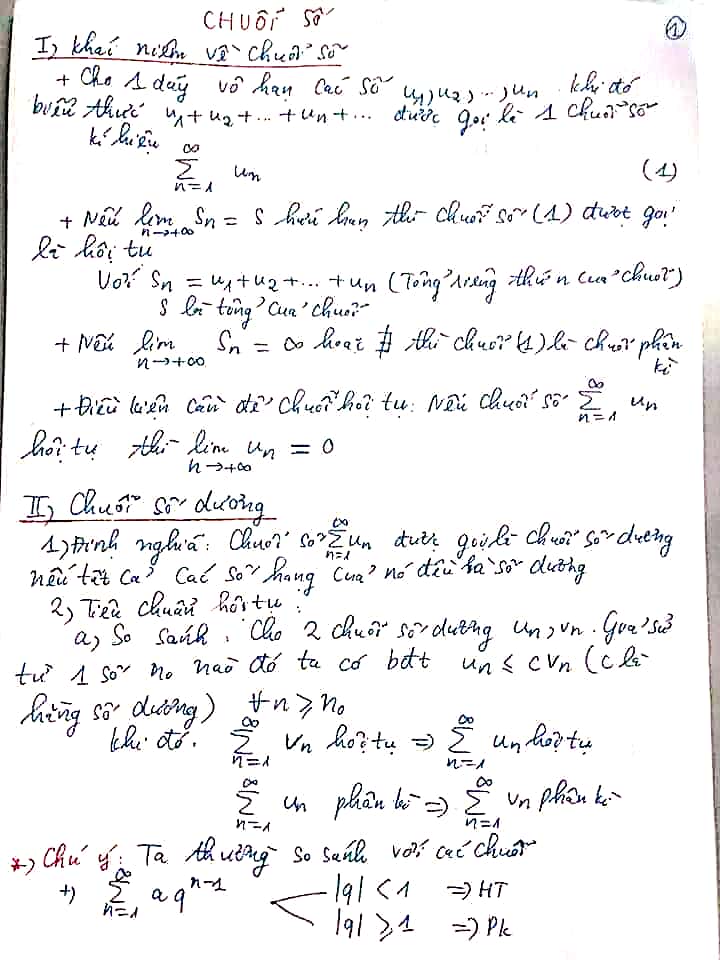 CHUỖI SỐ
①
I, Khái niệm về chuỗi số
+ Cho 1 dãy vô hạn các số u₁, u₂, ..., uₙ khi đó
biểu thức u₁ + u₂ + ... + uₙ + ... được gọi là 1 chuỗi số
kí hiệu
∞
∑ uₙ (1)
n=1
+ Nếu lim Sₙ = S hữu hạn thì chuỗi số (1) được gọi
n→+∞
là hội tụ
Với Sₙ = u₁ + u₂ + ... + uₙ (Tổng riêng thứ n của chuỗi)
S là tổng của chuỗi
+ Nếu lim Sₙ = ∞ hoặc ∄ thì chuỗi (1) là chuỗi phân
n→+∞ kì
+ Điều kiện cần để chuỗi hội tụ: Nếu chuỗi số ∞∑n=1 uₙ
hội tụ thì lim uₙ = 0
n→+∞
II, Chuỗi số dương
1, Định nghĩa: Chuỗi số ∞∑n=1 uₙ được gọi là chuỗi số dương
nếu tất cả các số hạng của nó đều là số dương
2, Tiêu chuẩn hội tụ:
a, So sánh. Cho 2 chuỗi số dương uₙ, vₙ. Giả sử
từ 1 số n₀ nào đó ta có bđt uₙ ≤ cvₙ (c là
hằng số dương) ∀n ≥ n₀
khi đó. ∞∑n=1 vₙ hội tụ => ∞∑n=1 uₙ hội tụ
∞∑n=1 uₙ phân kì => ∞∑n=1 vₙ phân kì
*, Chú ý: Ta thường so sánh với các chuỗi
+, ∞∑n=1 aqⁿ⁻¹ |q| < 1 => HT
|q| ≥ 1 => PK